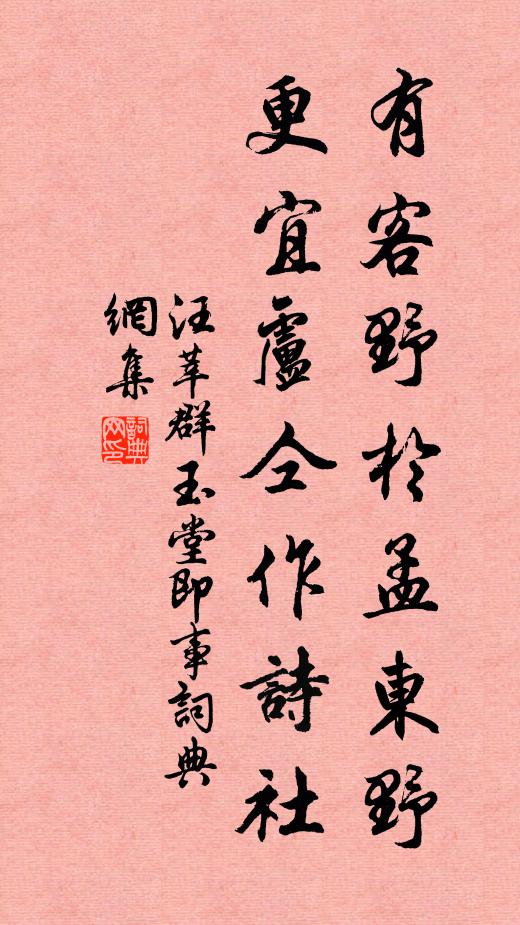 有客野於孟東野
更宜盧仝作詩社
汪莘群玉堂即事詞典
網集
詞典網印